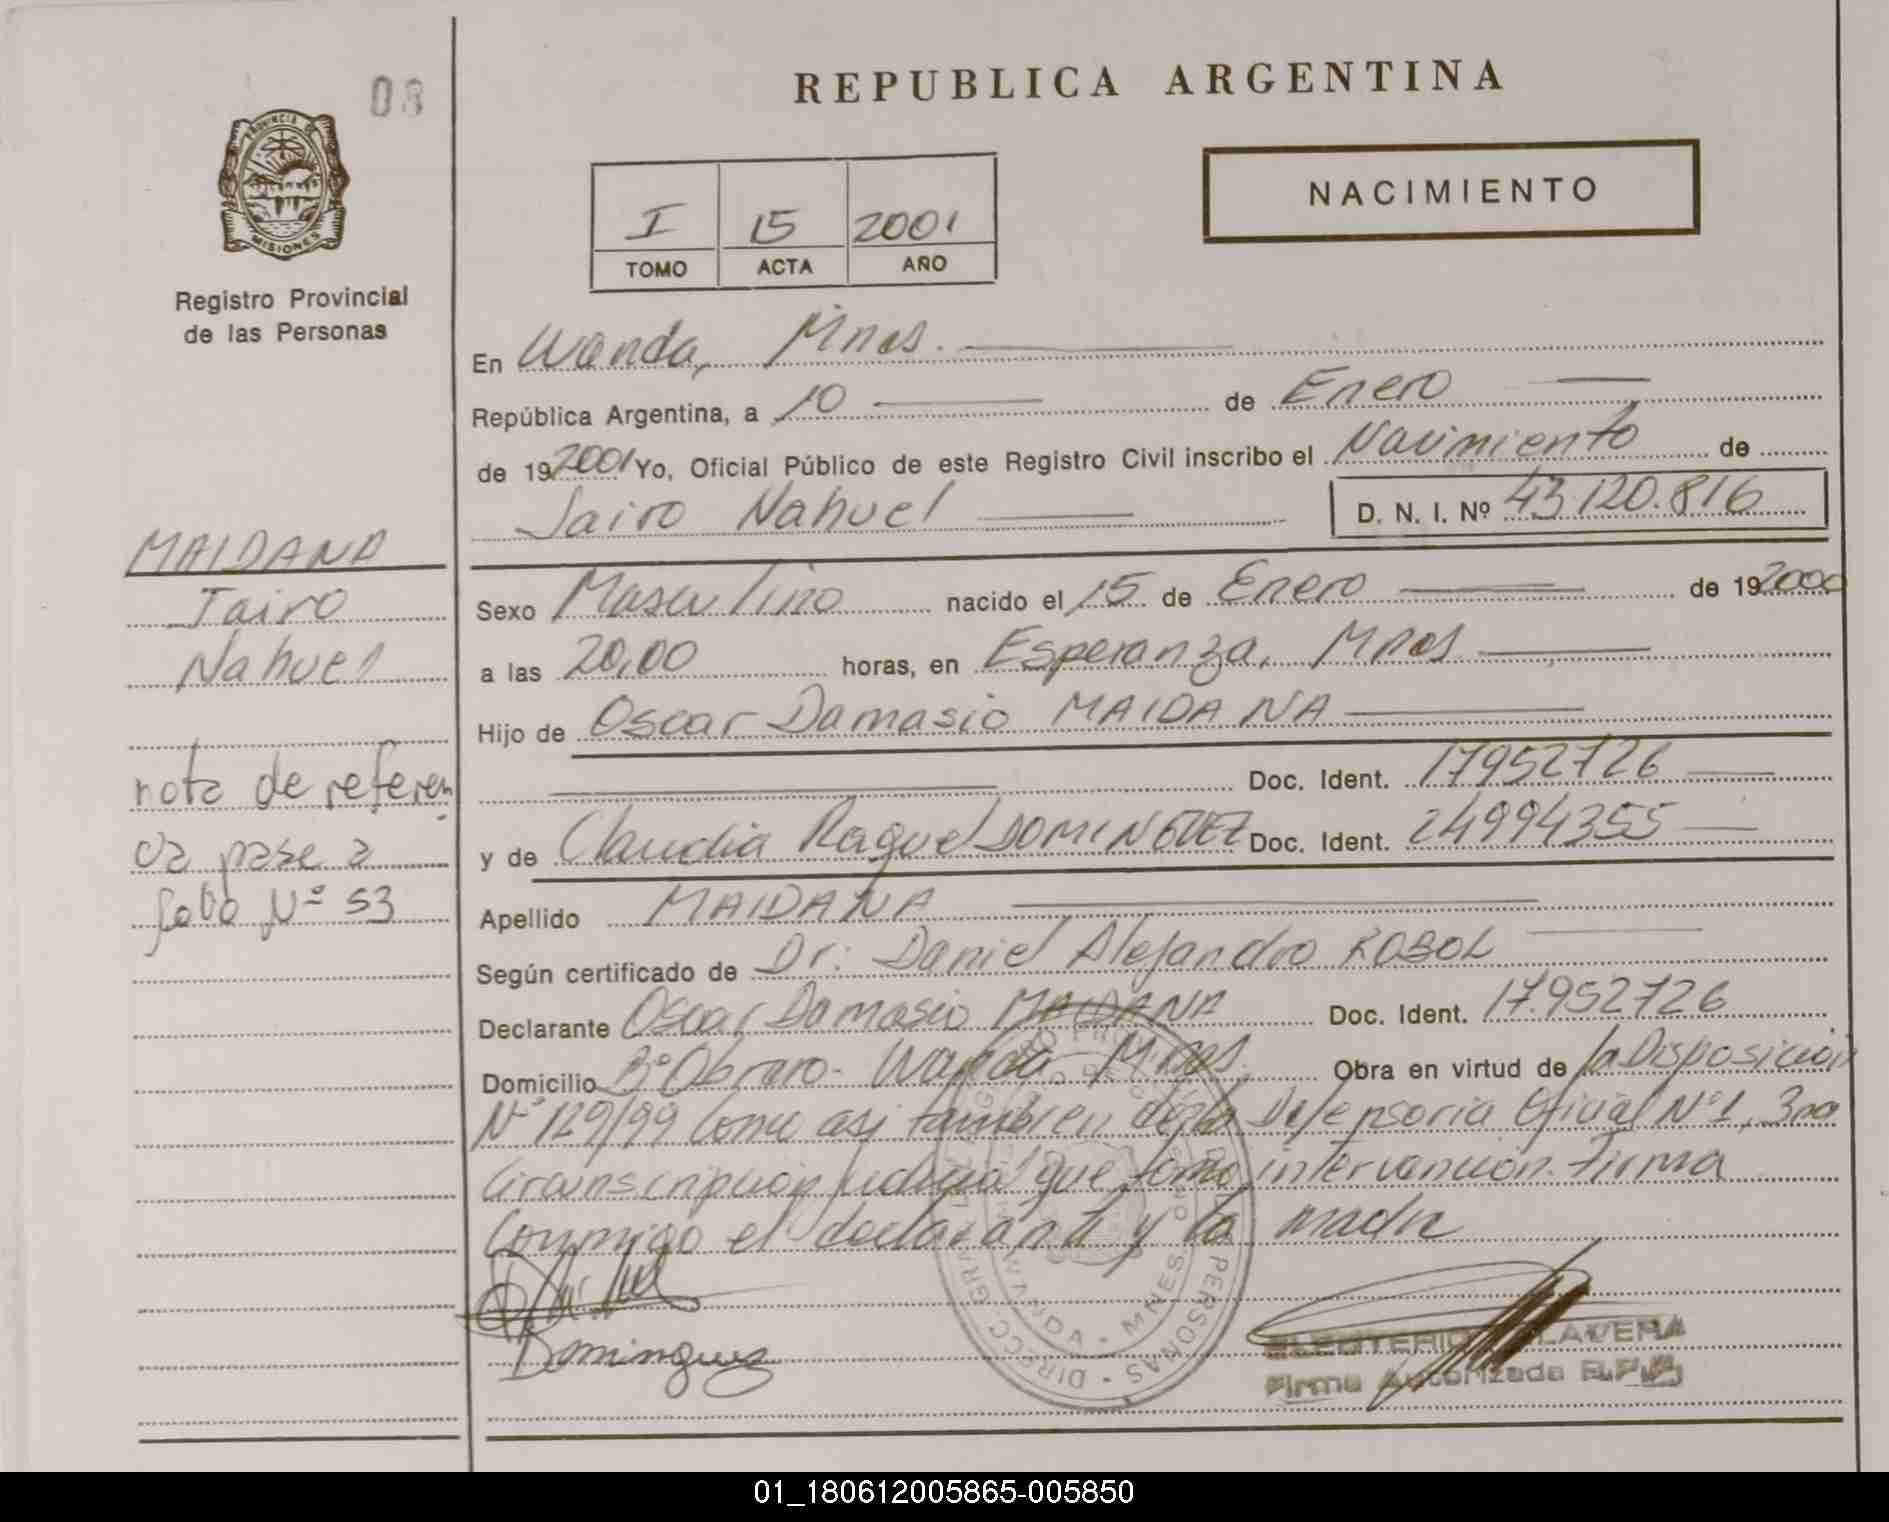 08
PROVINCIA DE
MISIONES
Registro Provincial
de las Personas
REPUBLICA ARGENTINA
NACIMIENTO
I 15 2001
TOMO ACTA AÑO
En Wanda, Mnes.
República Argentina, a 10 de Enero
de 19 2001 Yo, Oficial Público de este Registro Civil inscribo el Nacimiento de
Jairo Nahuel D. N. I. Nº 43120.816
MAIDANA
Jairo
Nahuel
nota de referen
cia pase a
folio Nº 53
Sexo Masculino nacido el 15 de Enero de 19 2000
a las 20,00 horas, en Esperanza, Mnes
Hijo de Oscar Damasio MAIDANA
Doc. Ident. 17952726
y de Claudia Raquel DOMINGUEZ Doc. Ident. 24994355
Apellido MAIDANA
Según certificado de Dr: Daniel Alejandro ROBOL
Declarante Oscar Damasio MAIDANA Doc. Ident. 17.952726
Domicilio Bº Obrero- Wanda Mnes. Obra en virtud de la Disposición
Nº 129/99 Como asi tambien de la Defensoria Oficial Nº 1, 3ra
Circunscripción judicial que tomo intervencion. Firma
Conmigo el declarante y la madre
Dominguez
WANDA - MNES
PERSONAS - DIRECC GRAL
Firma Autorizada R.P.P.
01_180612005865-005850